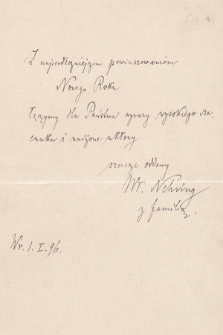 Z najserdeczniejszem powinszowaniem
Nowego Roku
łączymy dla Państwa wyrazy wysokiego sza-
cunku i uniżone ukłony
szczerze oddany
Wł. Nehring
z familią.
Wr. 1. I. 96.